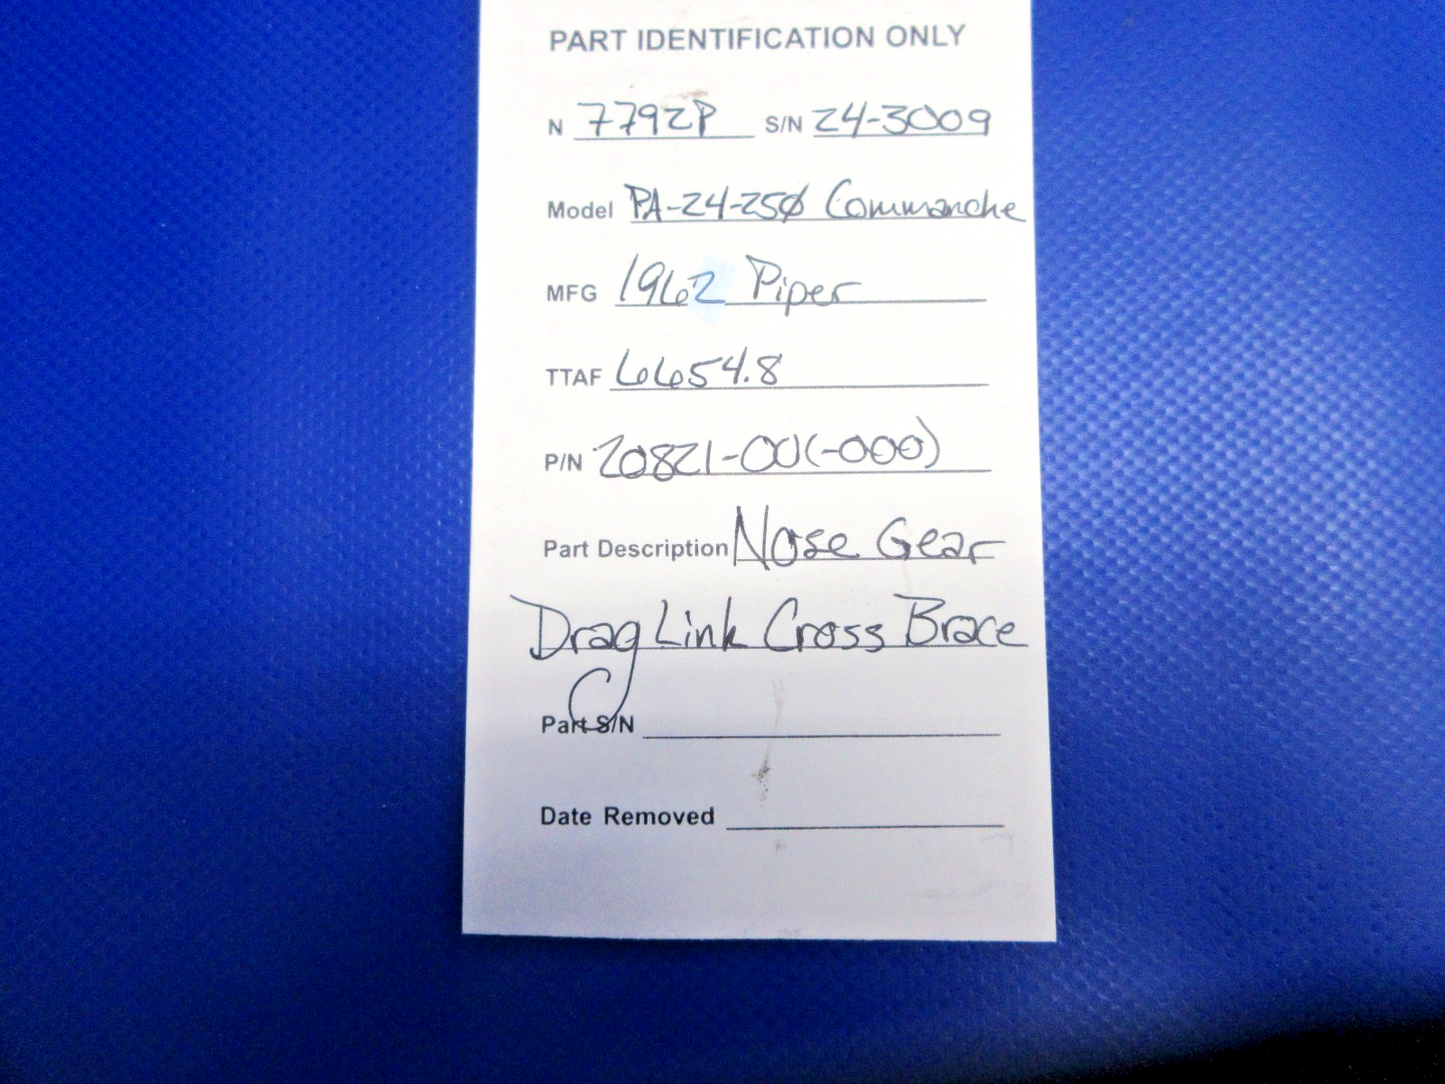 PART IDENTIFICATION ONLY
N 7792P S/N 24-3009
Model PA-24-250 Commanche
MFG 1962 Piper
TTAF 6654.8
P/N 20821-00(-000)
Part Description Nose Gear
Drag Link Cross Brace
Part S/N
Date Removed